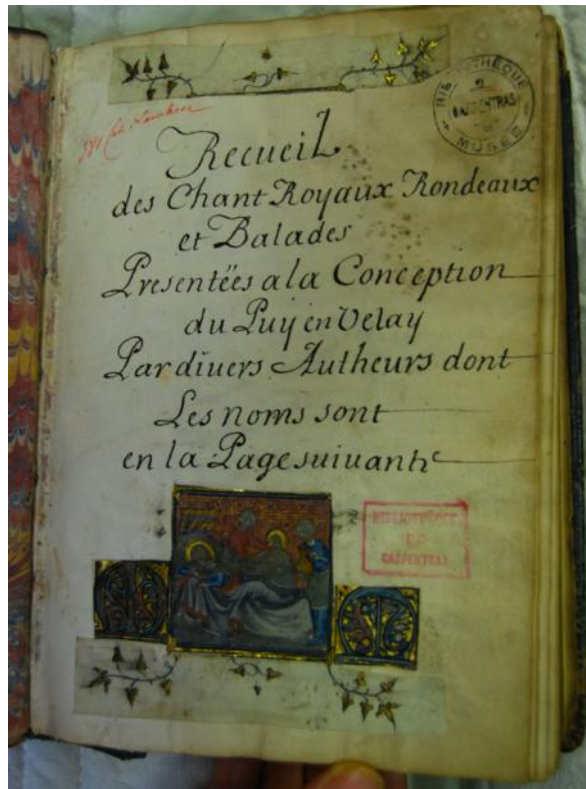 BIBLIOTHÈQUE
CARPENTRAS
MUSÉE
Recueil
des Chant Royaux Rondeaux
et Balades
Presentëes a la Conception
du Puy en Velay
Par diuers Autheurs dont
Les noms sont
en la Page suiuante
BIBLIOTHÈQUE
DE
CARPENTRAS